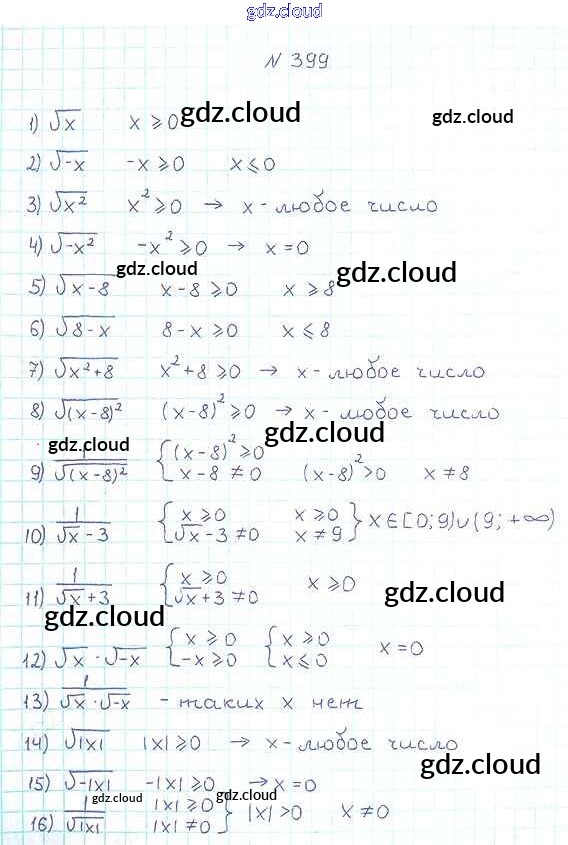 gdz.cloud
№ 399
gdz.cloud gdz.cloud
1) √x x ⩾ 0
2) √-x -x ⩾ 0 x ⩽ 0
3) √x² x² ⩾ 0 → x - любое число
4) √-x² -x² ⩾ 0 → x = 0
gdz.cloud gdz.cloud
5) √x-8 x-8 ⩾ 0 x ⩾ 8
6) √8-x 8-x ⩾ 0 x ⩽ 8
7) √x²+8 x²+8 ⩾ 0 → x - любое число
8) √(x-8)² (x-8)² ⩾ 0 → x - любое число
gdz.cloud gdz.cloud
9) 1/√(x-8)² { (x-8)² ⩾ 0 x-8 ≠ 0 (x-8)² > 0 x ≠ 8
10) 1/√x-3 { x ⩾ 0 √x-3 ≠ 0 x ⩾ 0 x ≠ 9 } x ∈ [0; 9) ∪ (9; +∞)
11) 1/√x+3 { x ⩾ 0 √x+3 ≠ 0 x ⩾ 0
gdz.cloud gdz.cloud
12) √x · √-x { x ⩾ 0 -x ⩾ 0 { x ⩾ 0 x ⩽ 0 x = 0
13) 1/√x · √-x - таких x нет
14) √|x| |x| ⩾ 0 → x - любое число
gdz.cloud
15) √-|x| -|x| ⩾ 0 → x = 0
gdz.cloud gdz.cloud
16) 1/√|x| |x| ⩾ 0 |x| ≠ 0 } |x| > 0 x ≠ 0